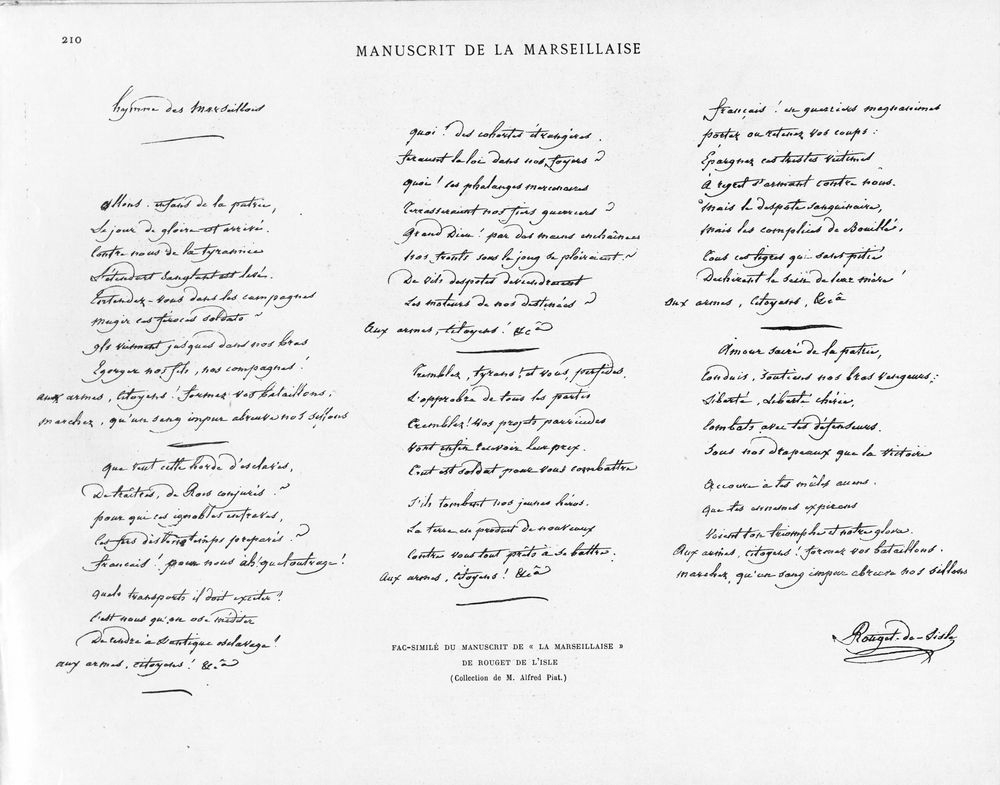 210
MANUSCRIT DE LA MARSEILLAISE
hymne des Marseillois
Allons. enfans de la patrie,
Le jour de gloire est arrivé.
Contre nous de la tyrannie
L'étendart sanglant est levé.
Entendez-vous dans les campagnes
mugir ces féroces soldats ?
Ils viennent jusques dans nos bras
Egorger nos fils, nos compagnes !
aux armes, citoyens ! formez vos bataillons ;
marchez, qu'un sang impur abreuve nos sillons
Que veut cette horde d'esclaves,
De traitres, de Rois conjurés ?
pour qui ces ignobles entraves,
Ces fers dès longtemps préparés ?
français ! pour nous ah ! quel outrage !
quels transports il doit exciter !
C'est nous qu'on ose méditer
De rendre à l'antique esclavage !
aux armes, citoyens ! &ca
quoi ! des cohortes étrangères
feraient la loi dans nos foyers ?
quoi ! ces phalanges mercenaires
Terrasseraient nos fiers guerriers ?
Grand Dieu ! par des mains enchaînées
nos fronts sous le joug se ploiraient ?
De vils despotes deviendraient
Les moteurs de nos destinées ?
Aux armes, citoyens ! &ca
Tremblez, tyrans ! et vous, perfides,
L'opprobre de tous les partes
Tremblez ! Vos projets parricides
Vont enfin recevoir leur prix.
Tout est soldat pour vous combattre
S'ils tombent nos jeunes héros.
La terre en produit de nouveaux
Contre vous tout prêts à se battre.
Aux armes, citoyens ! &ca
FAC-SIMILÉ DU MANUSCRIT DE « LA MARSEILLAISE »
DE ROUGET DE L'ISLE
(Collection de M. Alfred Piat.)
français ! en guerriers magnanimes
portez ou retenez vos coups :
Épargnez ces tristes victimes
À regret s'armant contre nous.
Mais le despote sanguinaire,
Mais les complices de Bouillé,
Tous ces tigres qui sans pitié
Déchirent le sein de leur mère !
Aux armes, citoyens, &ca
Amour sacré de la patrie,
Conduis, soutiens nos bras vengeurs ;
Liberté, Liberté chérie,
Combats avec tes défenseurs.
Sous nos drapeaux que la victoire
Accoure à tes mâles accens.
Que tes ennemis expirans
Voient ton triomphe et notre gloire
Aux armes, citoyens ! formez vos bataillons.
marchez, qu'un sang impur abreuve nos sillons
Rouget-de-Lisle